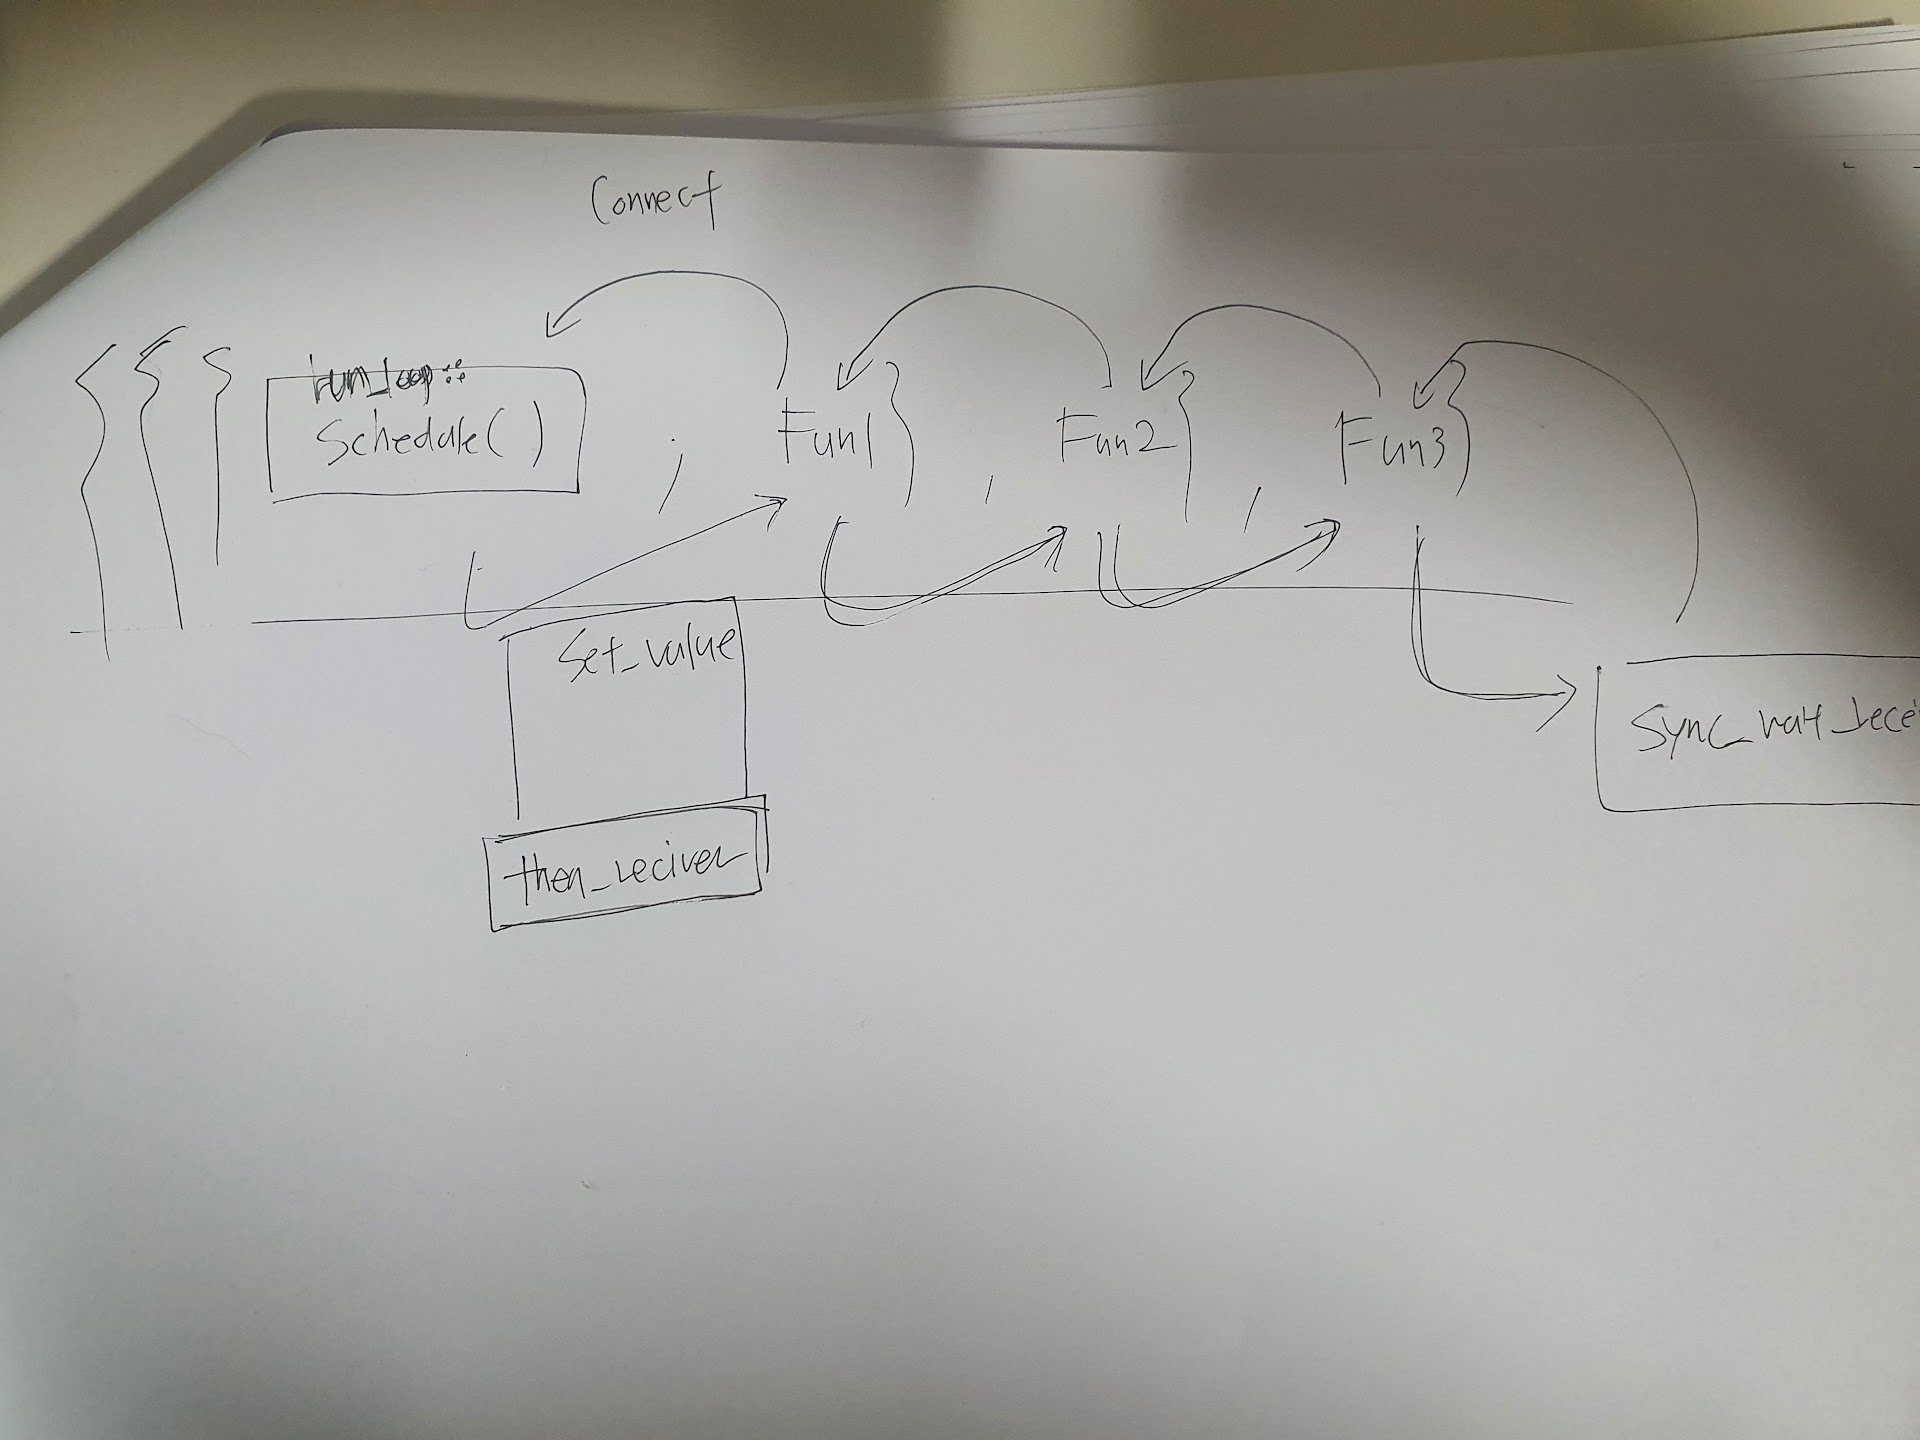 Connect
{ { { run_loop::
Schedule() , Fun1} , Fun2} , Fun3}
Set_value
then_reciver